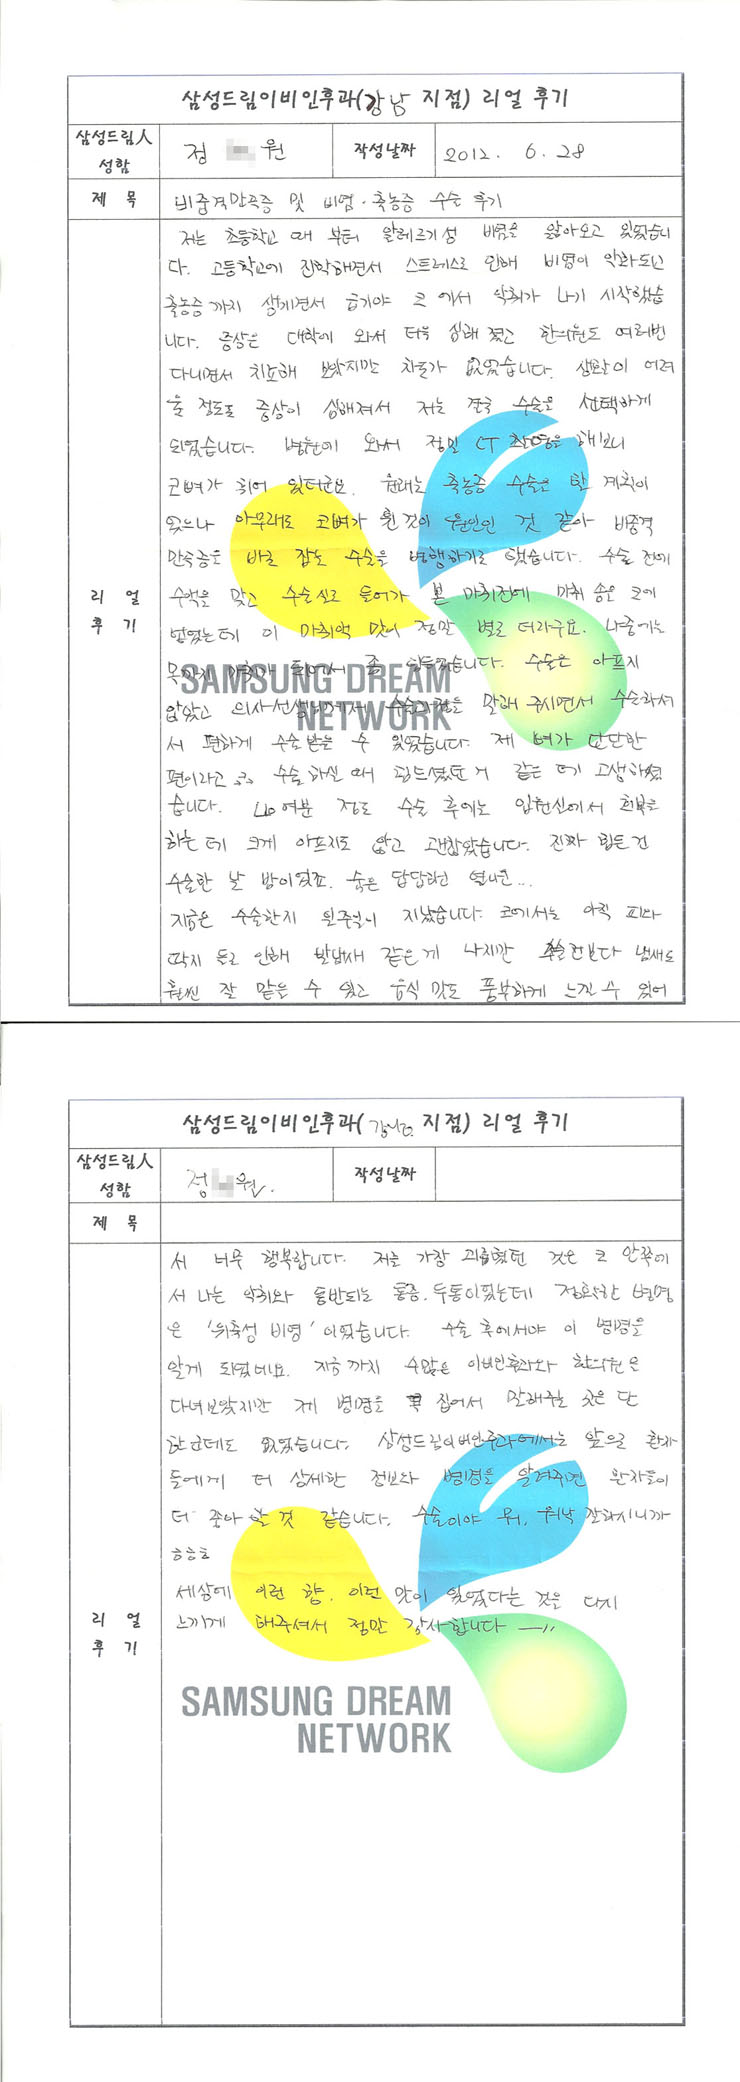 삼성드림이비인후과(강남 지점) 리얼 후기
삼성드림人 성함
정 원
작성날짜
2012. 6. 28
제 목
비중격만곡증 및 비염·축농증 수술 후기
리 얼 후 기
저는 초등학교 때 부터 알레르기성 비염을 앓아오고 있었습니
다. 고등학교에 진학하면서 스트레스로 인해 비염이 악화되고
축농증까지 생기면서 급기야 코에서 악취가 나기 시작했습
니다. 증상은 대학에 와서 더욱 심해졌고 한의원도 여러번
다니면서 치료해 보았지만 차도가 없었습니다. 생활이 어려
울 정도로 증상이 심해져서 저는 결국 수술을 선택하게
되었습니다. 병원에 와서 정밀 CT 촬영을 해보니
코뼈가 휘어 있더군요. 원래는 축농증 수술만 할 계획이
었으나 아무래도 코뼈가 휜것이 원인인 것 같아 비중격
만곡증을 바로 잡는 수술을 병행하기로 했습니다. 수술 전에
수액을 맞고 수술실로 들어가 본 마취전에 마취 솜을 코에
넣었는데 이 마취약 맛이 정말 별로더라구요. 나중에는
목까지 마취가 되어서 좀 힘들었습니다. 수술은 아프지
않았고 의사선생님께서 수술과정을 말해 주시면서 수술하셔
서 편하게 수술받을 수 있었습니다. 제 뼈가 단단한
편이라고 수술하실 때 힘드셨던거 같은데 고생하셨
습니다. 40여분 정도 수술 후에는 입원실에서 회복을
하는데 크게 아프지도 않고 괜찮았습니다. 진짜 힘든건
수술한 날 밤이었죠. 숨은 답답하고 열나고...
지금은 수술한지 일주일이 지났습니다. 코에서는 아직 피와
딱지 등으로 인해 발냄새 같은게 나지만 수술전보다 냄새도
훨씬 잘 맡을 수 있고 음식 맛도 풍부하게 느낄 수 있어
SAMSUNG DREAM
NETWORK
삼성드림이비인후과(강남 지점) 리얼 후기
삼성드림人 성함
정 원.
작성날짜
제 목
리 얼 후 기
서 너무 행복합니다. 저를 가장 괴롭혔던 것은 코 안쪽에
서 나는 악취와 동반되는 통증, 두통이었는데 정확한 병명
은 '위축성 비염' 이었습니다. 수술 후에서야 이 병명을
알게 되었네요. 지금까지 수많은 이비인후과와 한의원을
다녀보았지만 제 병명을 콕 집어서 말해주는 곳은 단
한군데도 없었습니다. 삼성드림이비인후과에서는 앞으로 환자
들에게 더 상세한 정보와 병명을 알려주면 환자들이
더 좋아 할 것 같습니다. 수술이야 뭐, 워낙 잘하시니까
ㅎㅎㅎ
세상에 이런 향, 이런 맛이 있었다는 것을 다시
느끼게 해주셔서 정말 감사합니다
SAMSUNG DREAM
NETWORK